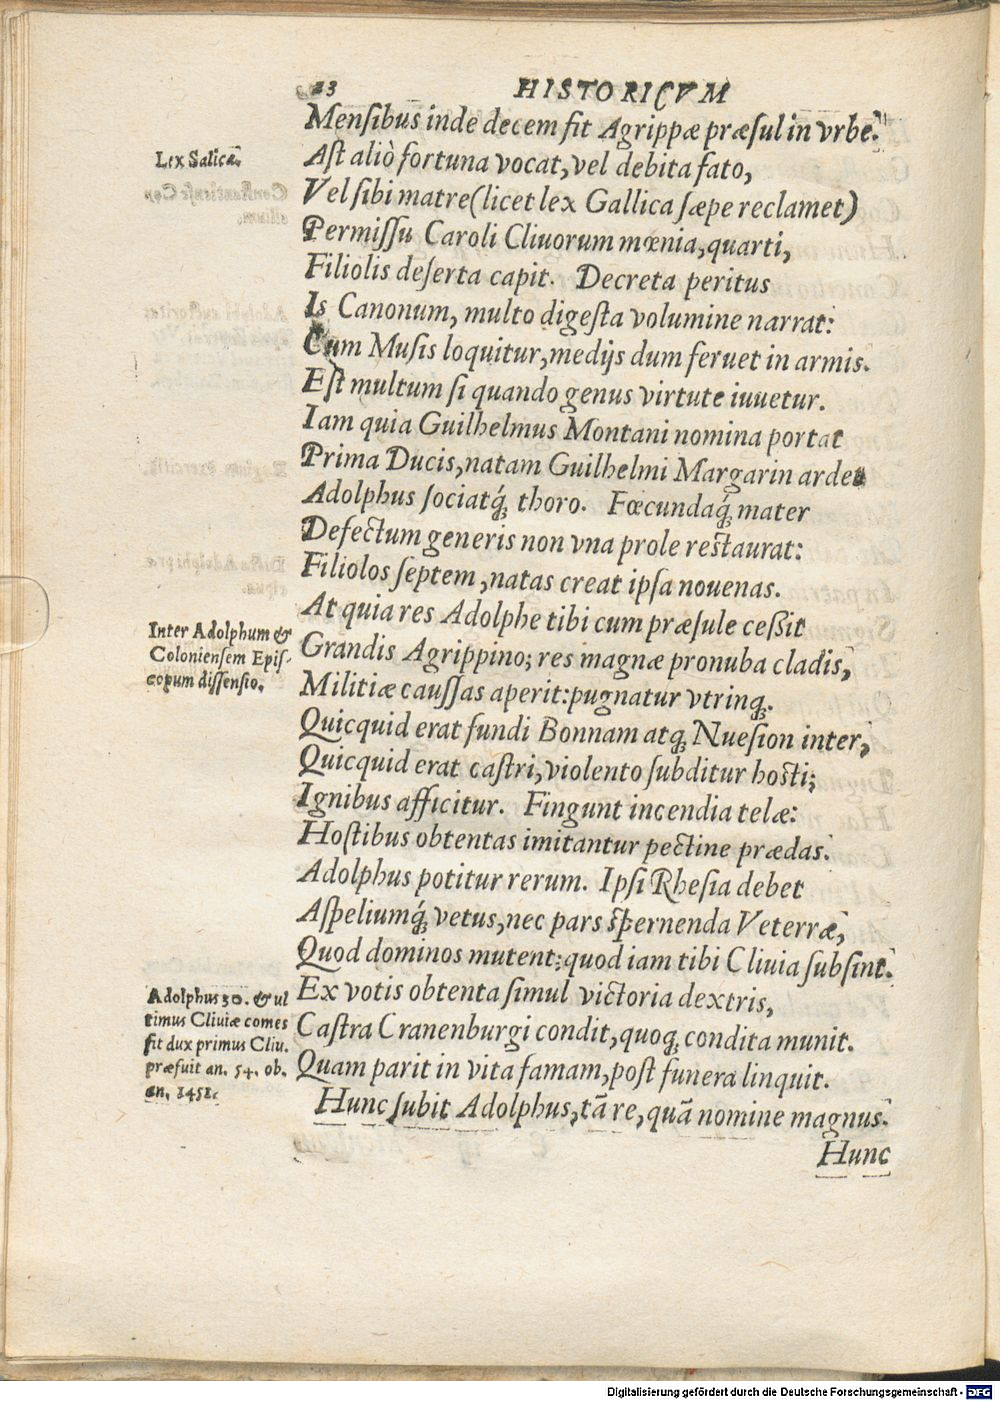 23 HISTORICVM
Menſibus inde decem fit Agrippæ præſul in vrbe.
Lex Salica.
Aſt aliò fortuna vocat, vel debita fato,
Vel ſibi matre (licet lex Gallica ſæpe reclamet)
Permiſſu Caroli Cliuorum mœnia, quarti,
Filiolis deſerta capit. Decreta peritus
Is Canonum, multo digeſta volumine narrat:
Cum Muſis loquitur, medijs dum feruet in armis.
Eſt multum ſi quando genus virtute iuuetur.
Iam quia Guilhelmus Montani nomina portat
Prima Ducis, natam Guilhelmi Margarin ardet
Adolphus ſociatq́; thoro. Fœcundaq́; mater
Defectum generis non vna prole reſtaurat:
Filiolos ſeptem, natas creat ipſa nouenas.
At quia res Adolphe tibi cum præſule ceßit
Inter Adolphum &
Colonienſem Epiſ-
copum diſſenſio.
Grandis Agrippino; res magnæ pronuba cladis,
Militiæ cauſſas aperit: pugnatur vtrinq;.
Quicquid erat fundi Bonnam atq; Nueſion inter,
Quicquid erat caſtri, violento ſubditur hoſti;
Ignibus afficitur. Fingunt incendia telæ:
Hoſtibus obtentas imitantur pectine prædas.
Adolphus potitur rerum. Ipſi Rheſia debet
Aſpeliumq́; vetus, nec pars ſpernenda Veterræ,
Quod dominos mutent: quod iam tibi Cliuia ſubſint.
Adolphus 30. & ul
timus Cliuiæ comes
fit dux primus Cliu.
præfuit an. 54. ob.
an. 1451.
Ex votis obtenta ſimul victoria dextris,
Caſtra Cranenburgi condit, quoq; condita munit.
Quam parit in vita famam, poſt funera linquit.
Hunc ſubit Adolphus, tã re, quã nomine magnus.
Hunc
Digitalisierung gefördert durch die Deutsche Forschungsgemeinschaft - DFG